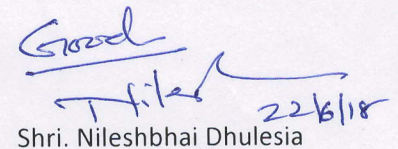 Good
Nilesh
22/6/18
Shri. Nileshbhai Dhulesia